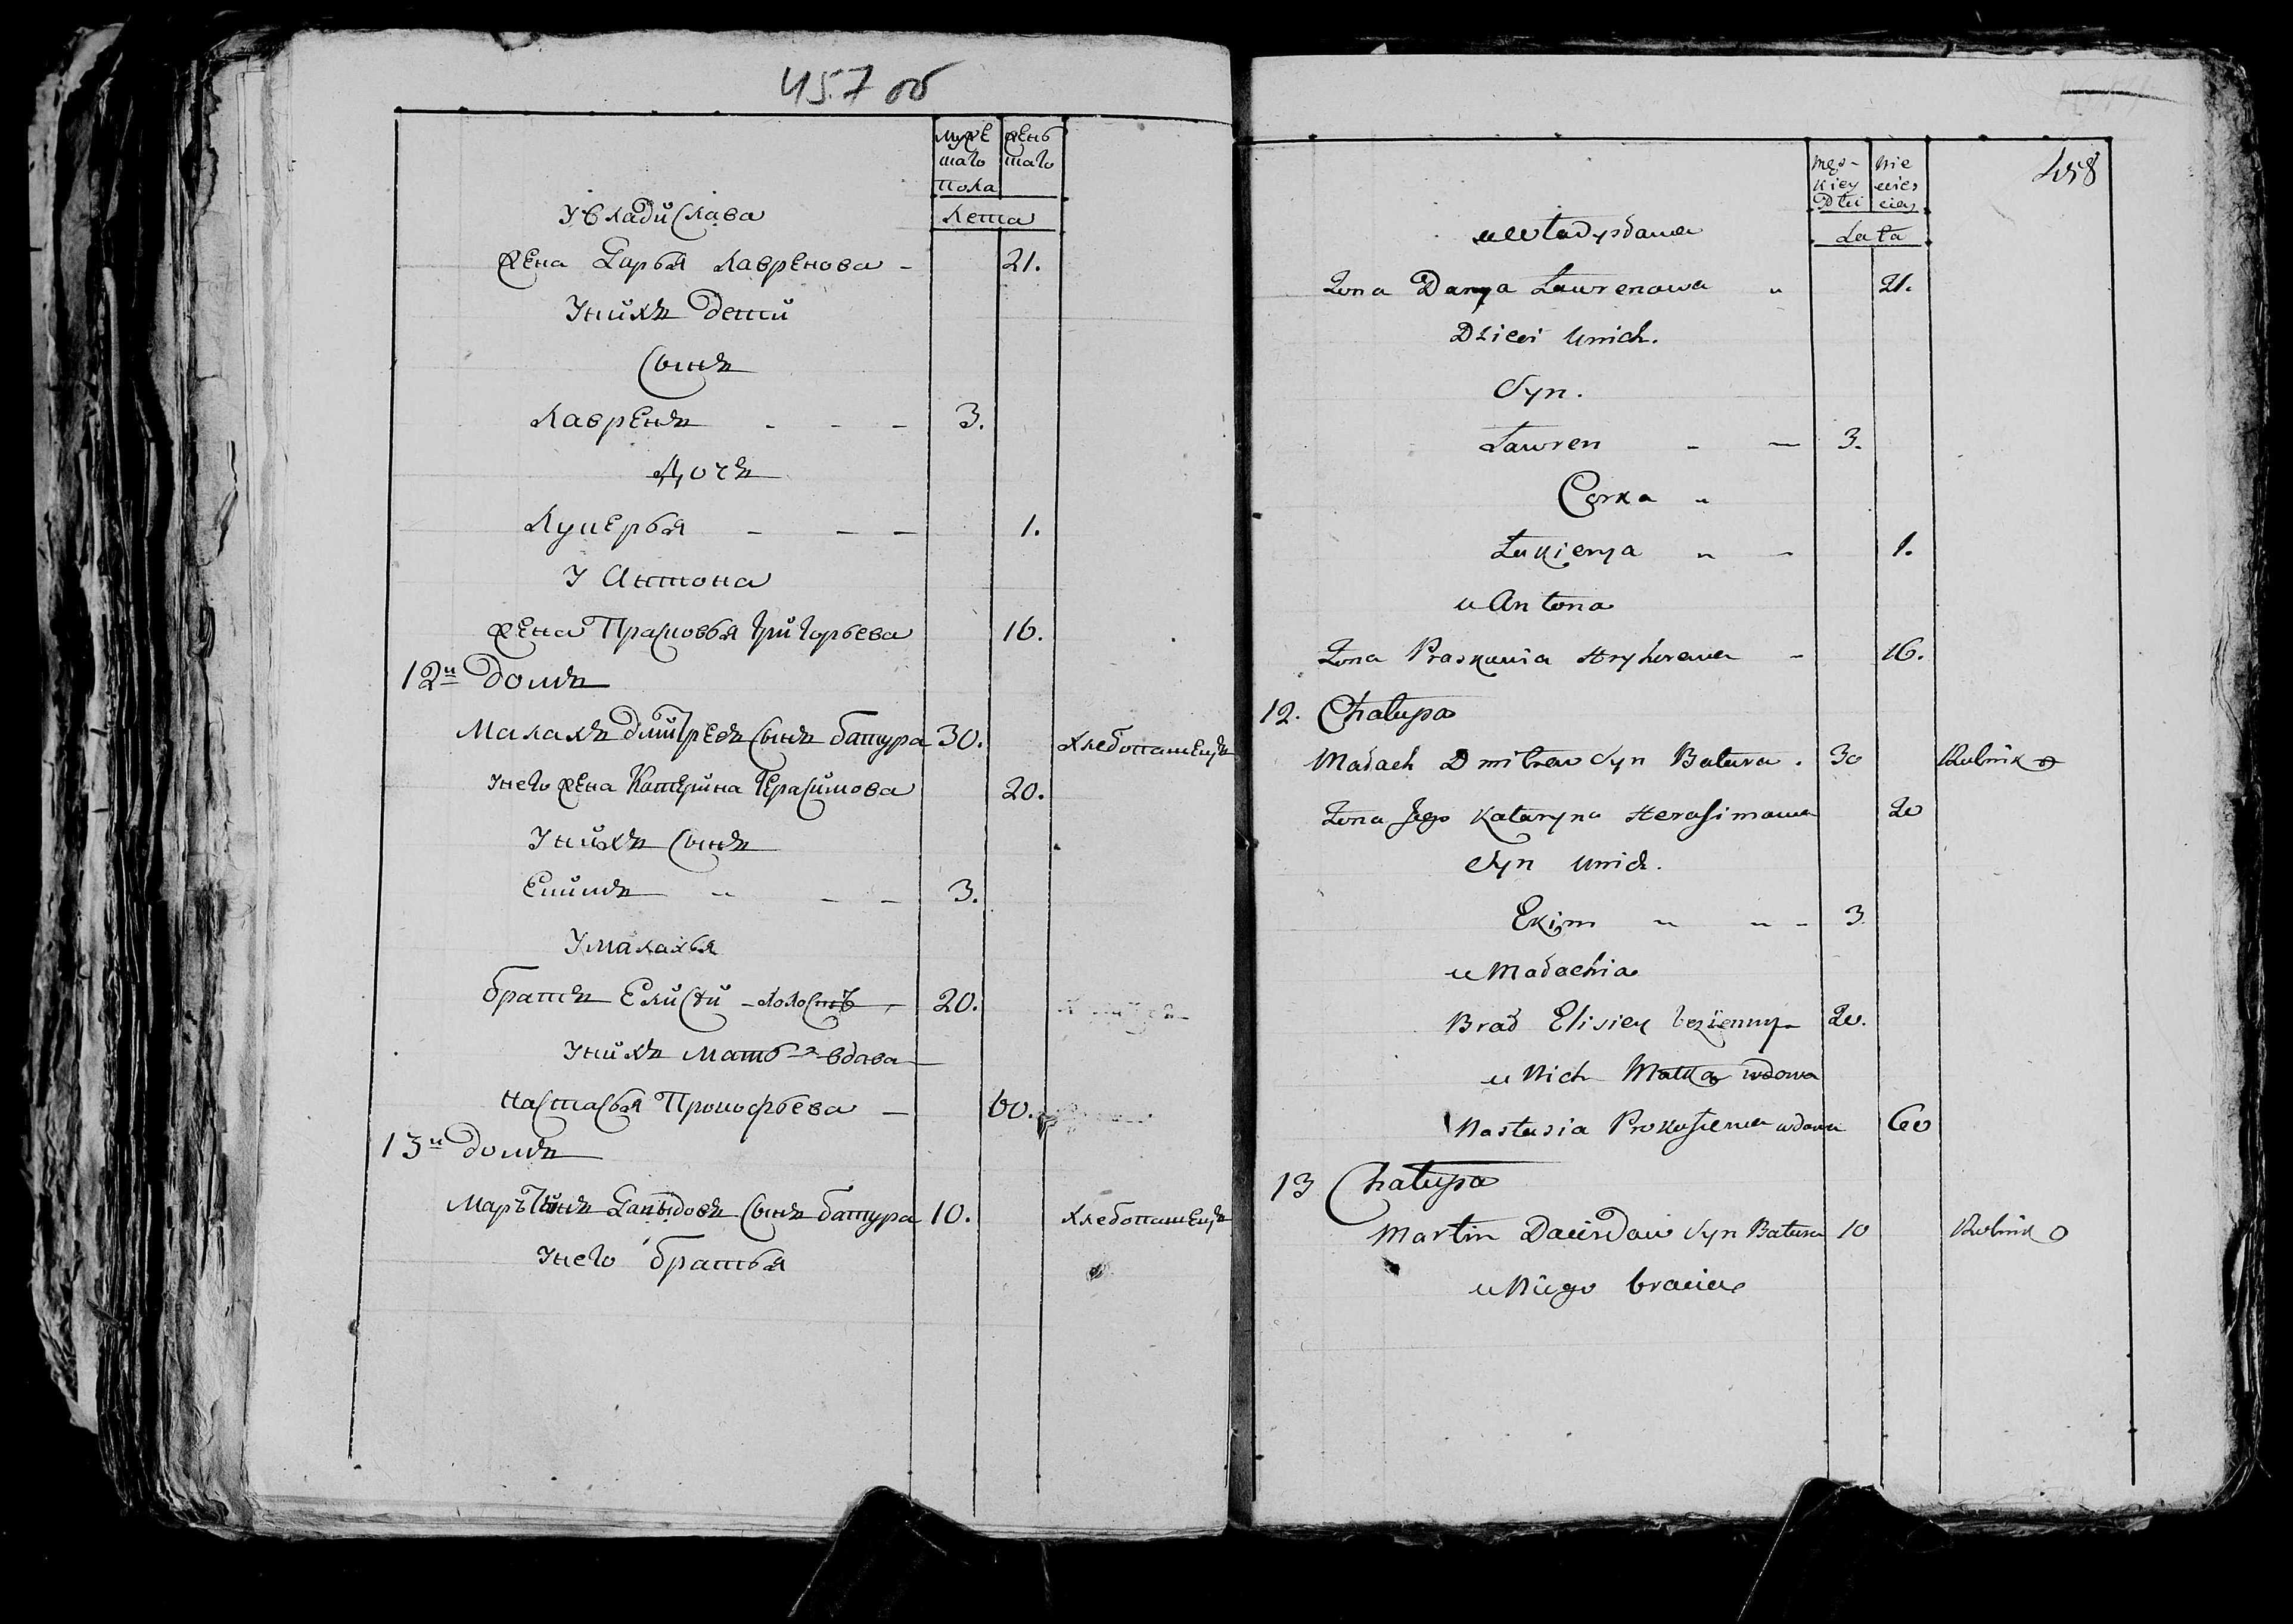 457 об
муже женъ
шаго шаго
пола
лета
У владислава
жена Дарья Лавренова - 21.
У нихъ дети
Сынъ
Лавренъ - - - 3.
Дочъ
Лукерья - - - 1.
У Антона
жена Прасковья Григорьева 16.
12й домъ
Малахъ дмитревъ Сынъ батура 30. хлебопашецъ
У него жена Катерина Герасимова 20.
У нихъ Сынъ
Екимъ - - - 3.
У малахья
братъ Елисей - холостъ 20.
У нихъ мать вдава
настасья Прокофьева - 60.
13й домъ
Мартинъ Давыдовъ Сынъ батура 10. хлебопашецъ
У него братья
458
męs- nie
kiey wies
Płci ciey
Lata
u Władysława
Żona Darya Ławrenowa 21.
Dzieci u nich.
Syn.
Ławren - - 3.
Corka
Łukierya - 1.
u Antona
Żona Praskowia Hryhorewa - 16.
12. Chałupa
Małach Dmitrew Syn Batura. 30 Rolnik
Żona Jego Kataryna Herasimowa 20
Syn u nich.
Ekim - 3
u Małachia
Brad Elisiey bezżenny 20.
u Nich Matka wdowa
Nastasia Prokofiewa wdowa 60
13 Chałupa
Martin Dawidow Syn Batura 10 Rolnik
u Niego bracia